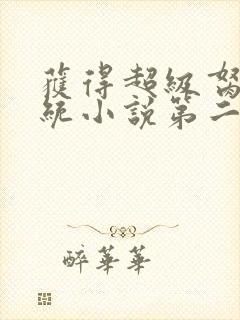 獲得超級
統小說第二
醉華華